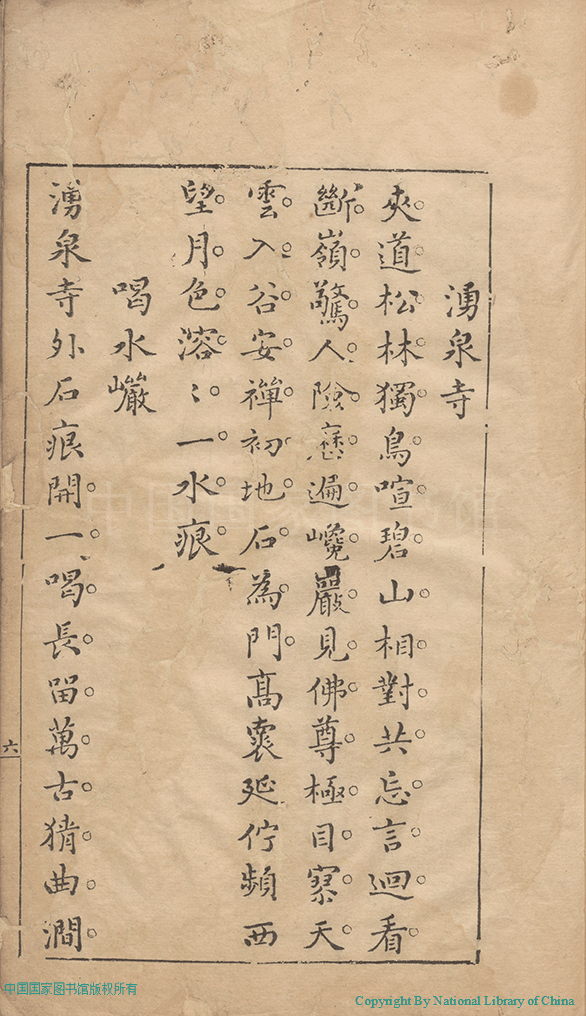 湧泉寺
夾道松林獨鳥喧碧山相對共忘言迴看
斷嶺驚人險歷遍巉巖見佛尊極目寥天
雲入谷安禪初地石為門髙褰延佇頻西
望月色溶〻一水痕
喝水巗
湧泉寺外石痕開一喝長畱萬古猜曲澗
六
中国国家图书馆版权所有
Copyright By National Library of China